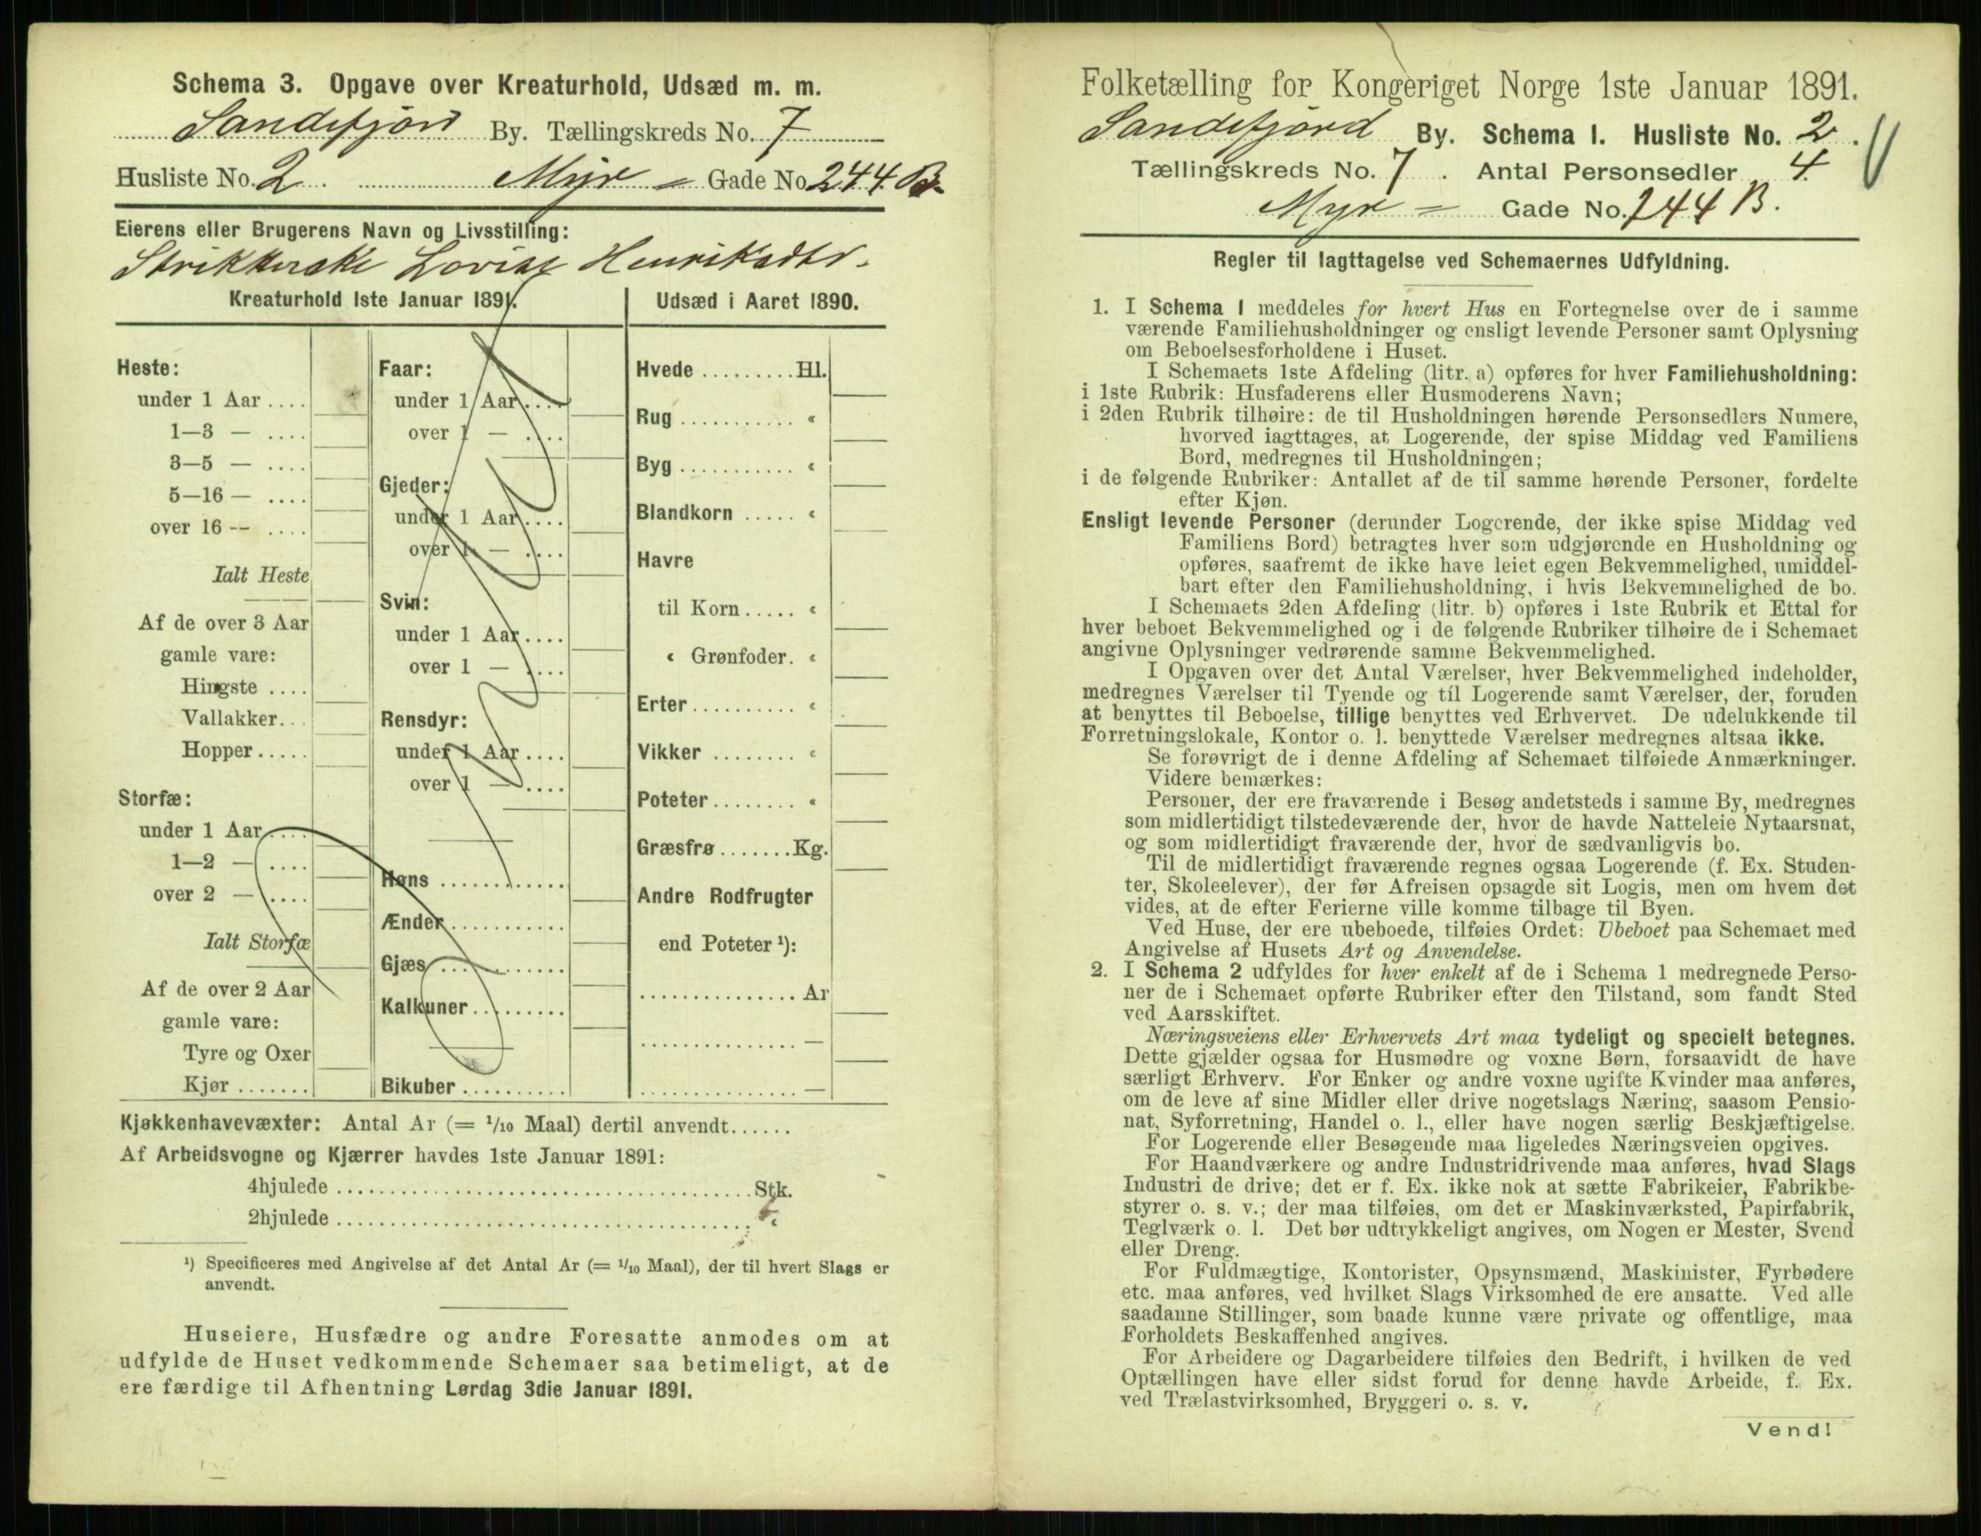 Schema 3. Opgave over Kreaturhold, Udsæd m. m.
Sandefjord By. Tællingskreds No. 7
Husliste No. 2. Myr = Gade No 244 B.
Eierens eller Brugerens Navn og Livsstilling:
Lovise Henriksdtr.
Kreaturhold 1ste Januar 1891.
Heste:
under 1 Aar ....
1—3 — ....
3—5 — ....
5—16 — ....
over 16 -- ....
Ialt Heste
Af de over 3 Aar
gamle vare:
Hingste ....
Vallakker. ..
Hopper .....
Storfæ:
under 1 Aar....
1—2 — ....
over 2 — ....
Ialt Storfæ
Af de over 2 Aar
gamle vare:
Tyre og Oxer
Kjør .......
Faar:
under 1 Aar ....
over 1 — ....
Gjeder:
under 1 Aar ....
over 1 — ....
Svin:
under 1 Aar ....
over 1 — ....
Rensdyr:
under 1 Aar ....
over 1 — ....
Høns ............
Ænder...........
Gjæs ............
Kalkuner.........
Bikuber ..........
Udsæd i Aaret 1890.
Hvede .........Hl.
Rug ........... «
Byg ........... «
Blandkorn ..... «
Havre
til Korn..... «
« Grønfoder. «
Erter.......... «
Vikker ........ «
Poteter........ «
Græsfrø.......Kg.
Andre Rodfrugter
end Poteter ¹):
............... Ar
............... —
............... —
Kjøkkenhavevæxter: Antal Ar (= 1/10 Maal) dertil anvendt......
Af Arbeidsvogne og Kjærrer havdes 1ste Januar 1891:
4hjulede ........................................Stk.
2hjulede ........................................ «
¹) Specificeres med Angivelse af det Antal Ar (= 1/10 Maal), der til hvert Slags er
anvendt.
Huseiere, Husfædre og andre Foresatte anmodes om at
udfylde de Huset vedkommende Schemaer saa betimeligt, at de
ere færdige til Afhentning Lørdag 3die Januar 1891.
Folketælling for Kongeriget Norge 1ste Januar 1891.
Sandefjord By. Schema I. Husliste No. 2.
Tællingskreds No. 7. Antal Personsedler 4.
Myr = Gade No. 244 B.
Regler til Iagttagelse ved Schemaernes Udfyldning.
1. I Schema 1 meddeles for hvert Hus en Fortegnelse over de i samme
værende Familiehusholdninger og ensligt levende Personer samt Oplysning
om Beboelsesforholdene i Huset.
I Schemaets 1ste Afdeling (litr. a) opføres for hver Familiehusholdning:
i 1ste Rubrik: Husfaderens eller Husmoderens Navn;
i 2den Rubrik tilhøire: de til Husholdningen hørende Personsedlers Numere,
hvorved iagttages, at Logerende, der spise Middag ved Familiens
Bord, medregnes til Husholdningen;
i de følgende Rubriker: Antallet af de til samme hørende Personer, fordelte
efter Kjøn.
Ensligt levende Personer (derunder Logerende, der ikke spise Middag ved
Familiens Bord) betragtes hver som udgjørende en Husholdning og
opføres, saafremt de ikke have leiet egen Bekvemmelighed, umiddel-
bart efter den Familiehusholdning, i hvis Bekvemmelighed de bo.
I Schemaets 2den Afdeling (litr. b) opføres i 1ste Rubrik et Ettal for
hver beboet Bekvemmelighed og i de følgende Rubriker tilhøire de i Schemaet
angivne Oplysninger vedrørende samme Bekvemmelighed.
I Opgaven over det Antal Værelser, hver Bekvemmelighed indeholder,
medregnes Værelser til Tyende og til Logerende samt Værelser, der, foruden
at benyttes til Beboelse, tillige benyttes ved Erhvervet. De udelukkende til
Forretningslokale, Kontor o. l. benyttede Værelser medregnes altsaa ikke.
Se forøvrigt de i denne Afdeling af Schemaet tilføiede Anmærkninger.
Videre bemærkes:
Personer, der ere fraværende i Besøg andetsteds i samme By, medregnes
som midlertidigt tilstedeværende der, hvor de havde Natteleie Nytaarsnat,
og som midlertidigt fraværende der, hvor de sædvanligvis bo.
Til de midlertidigt fraværende regnes ogsaa Logerende (f. Ex. Studen-
ter, Skoleelever), der før Afreisen opsagde sit Logis, men om hvem det
vides, at de efter Ferierne ville komme tilbage til Byen.
Ved Huse, der ere ubeboede, tilføies Ordet: Ubeboet paa Schemaet med
Angivelse af Husets Art og Anvendelse.
2. I Schema 2 udfyldes for hver enkelt af de i Schema 1 medregnede Perso-
ner de i Schemaet opførte Rubriker efter den Tilstand, som fandt Sted
ved Aarsskiftet.
Næringsveiens eller Erhvervets Art maa tydeligt og specielt betegnes.
Dette gjælder ogsaa for Husmødre og voxne Børn, forsaavidt de have
særligt Erhverv. For Enker og andre voxne ugifte Kvinder maa anføres,
om de leve af sine Midler eller drive nogetslags Næring, saasom Pensio-
nat, Syforretning, Handel o. l., eller have nogen særlig Beskjæftigelse.
For Logerende eller Besøgende maa ligeledes Næringsveien opgives.
For Haandværkere og andre Industridrivende maa anføres, hvad Slags
Industri de drive; det er f. Ex. ikke nok at sætte Fabrikeier, Fabrikbe-
styrer o. s. v.; der maa tilføies, om det er Maskinværksted, Papirfabrik,
Teglværk o. l. Det bør udtrykkeligt angives, om Nogen er Mester, Svend
eller Dreng.
For Fuldmægtige, Kontorister, Opsynsmænd, Maskinister, Fyrbødere
etc. maa anføres, ved hvilket Slags Virksomhed de ere ansatte. Ved alle
saadanne Stillinger, som baade kunne være private og offentlige, maa
Forholdets Beskaffenhed angives.
For Arbeidere og Dagarbeidere tilføies den Bedrift, i hvilken de ved
Optællingen have eller sidst forud for denne havde Arbeide, f. Ex.
ved Trælastvirksomhed, Bryggeri o. s. v.
Vend!